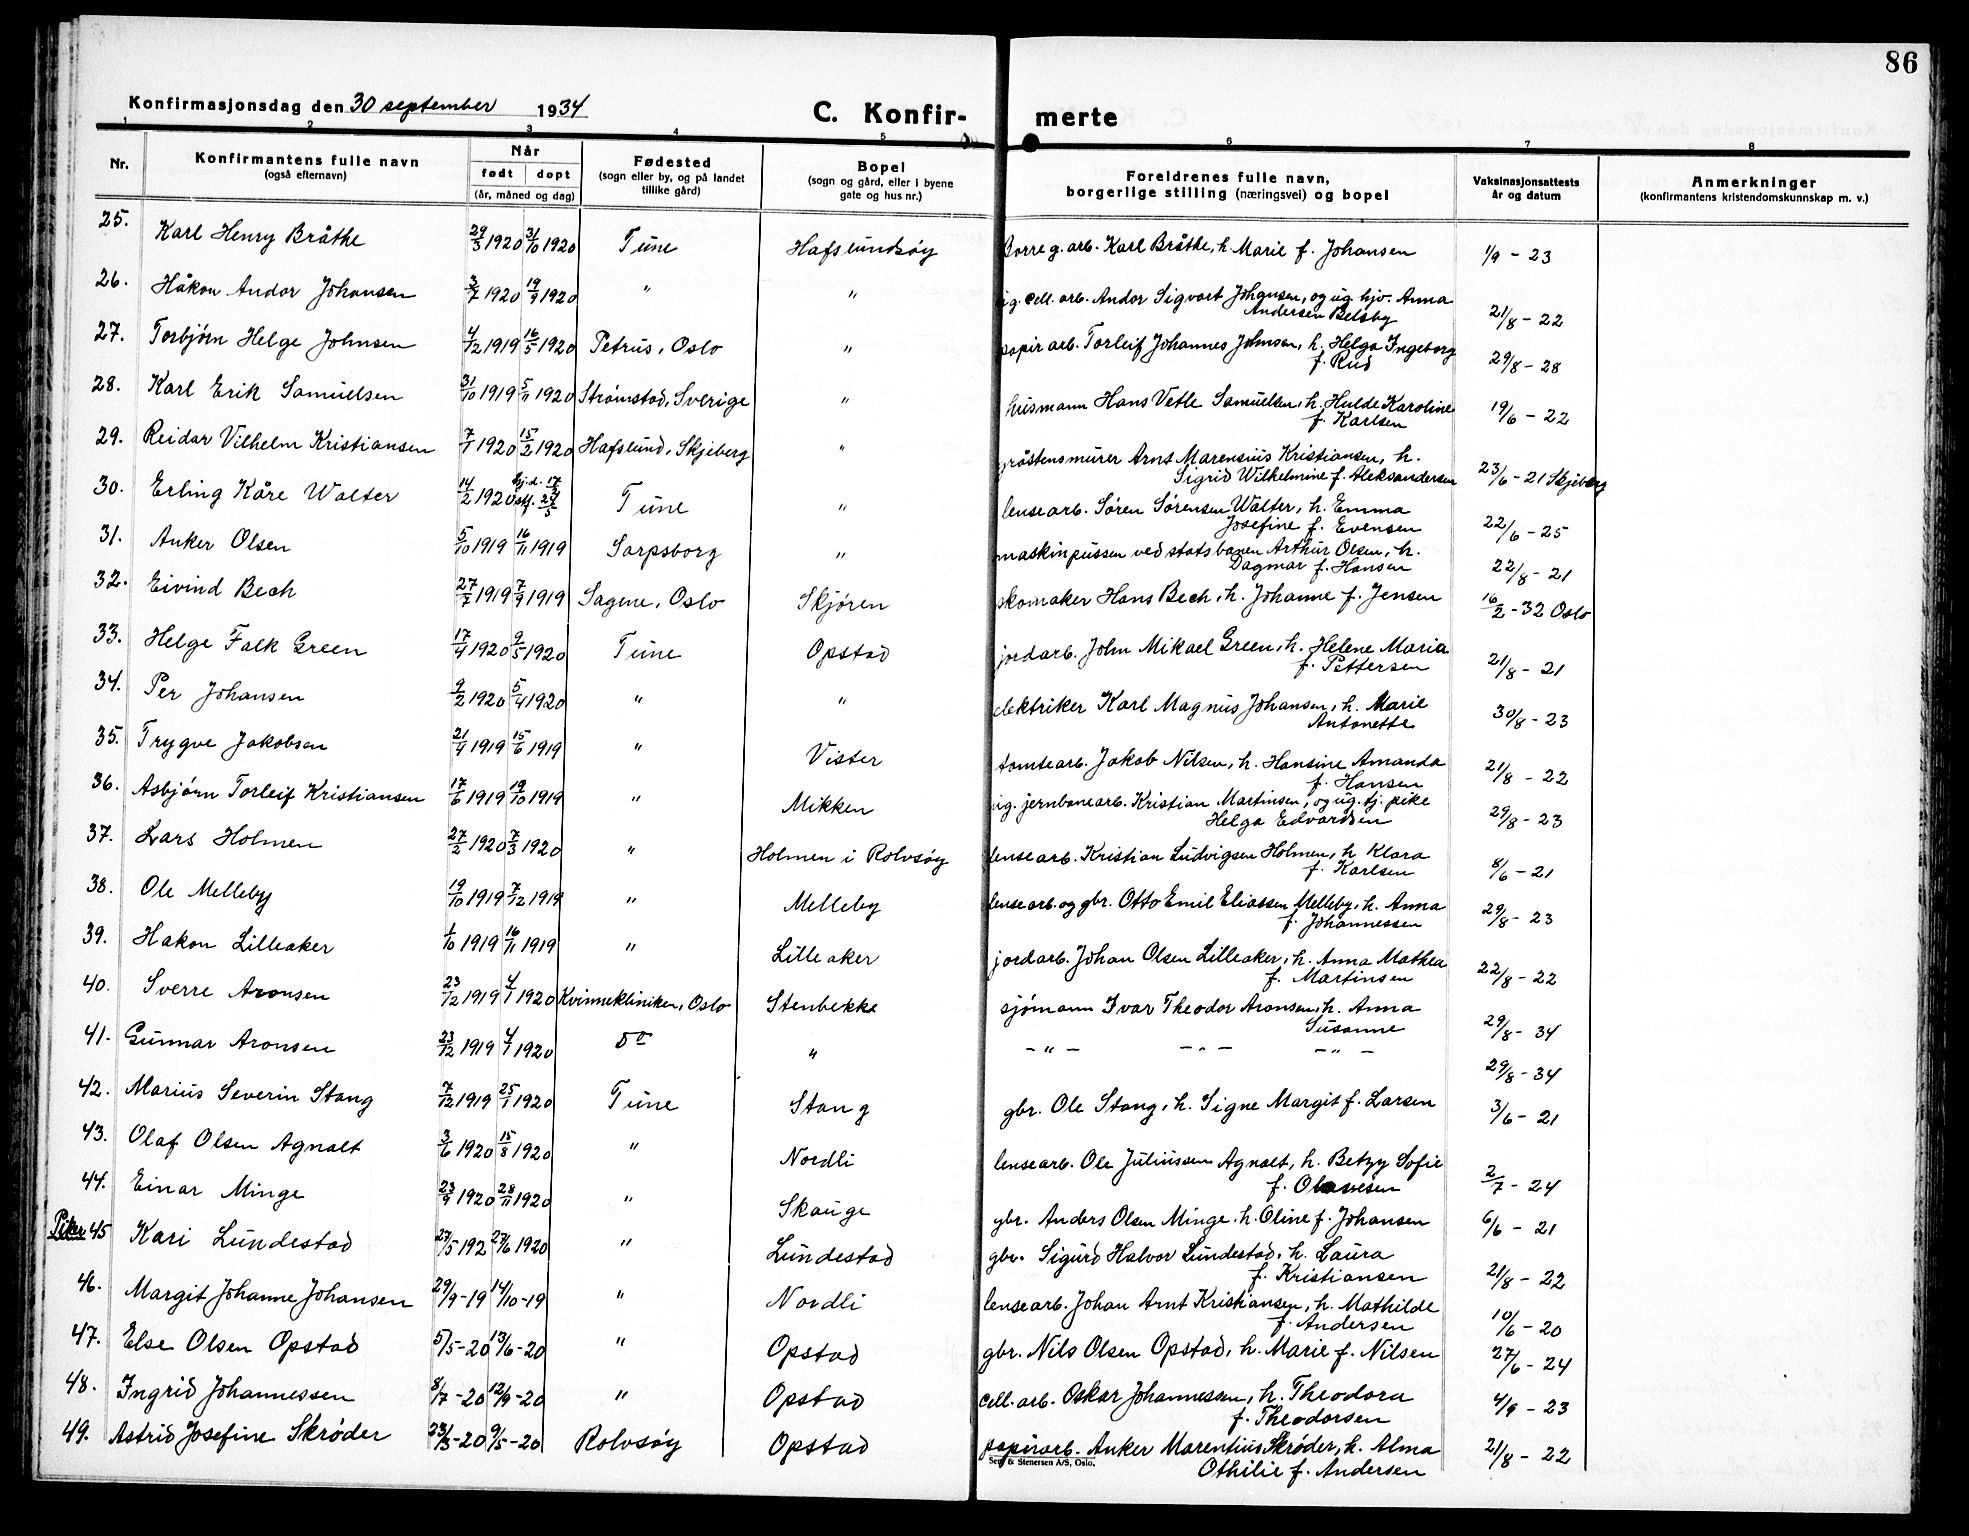 86
Konfirmasjonsdag den 30 september 1934
C. Konfir-
merte
1 2 3 4 5 6 7 8
Nr.
Konfirmantens fulle navn
(også efternavn)
Når
født dopt
(år, måned og dag)
Fødested
(sogn eller by, og på landet
tillike gård)
Bopel
(sogn og gård, eller i byene
gate og hus nr.)
Foreldrenes fulle navn,
borgerlige stilling (næringsvei) og bopel
Vaksinasjonsattests
år og datum
Anmerkninger
(konfirmantens kristendomskunnskap m. v.)
25. Karl Henry Bråthe 29/3 1920 31/10 1920 Tune Hafslundsøy Borreg. arb. Karl Bråthe, h. Marie f. Johansen 1/9 - 23
26. Håkon Andor Johansen 3/7 1920 19/9 1920 " " ug. cell. arb. Andor Sigvart Johansen, og ug. hjv. Anna
Andersen Belsby 21/8 - 22
27. Torbjørn Helge Johnsen 4/12 1919 16/5 1920 Petrus, Oslo " papirarb. Torleif Johannes Johnsen, h. Helga Ingeborg
f. Rud 29/8 - 28
28. Karl Erik Samuelsen 31/10 1919 5/11 1920 Strømstad, Sverige " husmann Hans Vetle Samuelsen, h. Hulda Karoline
f. Karlsen 19/6 - 22
29. Reidar Vilhelm Kristiansen 7/1 1920 15/2 1920 Hafslund, Skjeberg " gråstensmurer Arnt Marensius Kristiansen, h.
Sigrid Wilhelmine f. Aleksandersen 23/6 - 21 Skjeberg
30. Erling Kåre Walter 14/2 1920 Tune " lensearb. Søren Sørensen Walter, h. Emma
Josefine f. Evensen 22/6 - 25
31. Anker Olsen 5/10 1919 16/11 1919 Sarpsborg " maskinpusser ved statsbanen Arthur Olsen, h.
Dagmar f. Hansen 22/8 - 21
32. Eivind Bech 27/7 1919 7/9 1919 Sagene, Oslo Skjøren skomaker Hans Bech, h. Johanne f. Jensen 16/2 - 32 Oslo
33. Helge Falk Green 17/4 1920 9/5 1920 Tune Opstad jordarb. John Mikael Green, h. Helene Maria
f. Pettersen 21/8 - 21
34. Per Johansen 9/2 1920 5/4 1920 " " elektriker Karl Magnus Johansen, h. Marie
Antonette 30/8 - 23
35. Trygve Jakobsen 21/4 1919 15/6 1919 " Vister tomtearb. Jakob Nilsen, h. Hansine Amanda
f. Hansen 21/8 - 22
36. Asbjørn Torleif Kristiansen 17/6 1919 19/10 1919 " Mikken ug. jernbanearb. Kristian Martinsen, og ug. tj. pike
Helga Edvardsen 29/8 - 23
37. Lars Holmen 27/2 1920 7/3 1920 " Holmen i Rolvsøy lensearb. Kristian Ludvigsen Holmen, h Klara
f. Karlsen 8/6 - 21
38. Ole Melleby 19/10 1919 7/12 1919 " Melleby lensearb. og gbr. Otto Emil Eliassen Melleby, h. Anna
f. Johannessen 29/8 - 23
39. Hakon Lilleaker 1/10 1919 16/11 1919 " Lilleaker jordarb. Johan Olsen Lilleaker, h. Anna Mathea
f. Martinsen 22/8 - 22
40. Sverre Aronsen 23/12 1919 4/1 1920 Kvinneklinikken, Oslo Stenbekke sjømann Ivar Theodor Aronsen, h. Anna
Susanne 29/8 - 34
41. Gunnar Aronsen 23/12 1919 4/1 1920 do " - " - - " - - " - 29/8 - 34
42. Marius Severin Stang 7/12 1919 25/1 1920 Tune Stang gbr. Ole Stang, h. Signe Margit f. Larsen 3/6 - 21
43. Olaf Olsen Agnalt 3/6 1920 15/8 1920 " Nordli lensearb. Ole Juliussen Agnalt, h. Betzy Sofie
f. Olavesen 2/7 - 24
44. Einar Minge 23/9 1920 28/11 1920 " Skauge gbr. Anders Olsen Minge, h. Oline f. Johansen 6/6 - 21
Piker 45 Kari Lundestad 27/5 192 27/6 1920 " Lundestad gbr. Sigurd Halvor Lundestad, h. Laura
f. Kristiansen 21/8 - 22
46. Margit Johanne Johansen 29/9 - 19 14/10 - 19 " Nordli lensearb. Johan Arnt Kristiansen, h. Mathilde
f. Andersen 10/6 - 20
47. Else Olsen Opstad 5/5 - 20 13/6 - 20 " Opstad gbr. Nils Olsen Opstad, h. Marie f. Nilsen 27/6 - 24
48. Ingrid Johannessen 8/7 - 20 12/9 - 20 " Opstad cell. arb. Oskar Johannessen, h. Theodora
f. Theodorsen 4/9 - 23
49. Astrid Josefine Skrøder 23/3 - 20 9/5 - 20 Rolvsøy Opstad papirarb. Anker Marentius Skrøder, h. Alma
Othilie f. Andersen 21/8 - 22
& Stenersen A/S, Oslo.